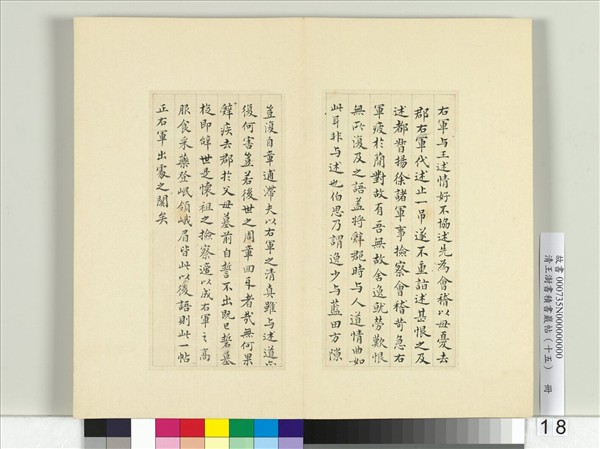 右軍与王述情好不協述先為會稽以母憂去
郡右軍代述止一吊遂不重詣述甚恨之及
述都督揚徐諸軍事檢察會稽苛急右
軍疲於簡對故有吾無故舍逸就勞歎恨
無所復及之語蓋将辭郡時与人道情曲如
此耳非与述也伯思乃謂逸少与藍田方隙
豈復自章適滯夫以右軍之清真雖与述道
復何害豈若後世之周章回耳者哉無何果
辭疾去郡於父母墓前自誓不出既已誓墓
後即辭世是懷祖之檢察適以成右軍之高
服食采藥登岷領峨眉皆此以後語則此一帖
正右軍出處之關矣
故書000735N000000000
清王澍書積書巖帖（十五） 冊
18